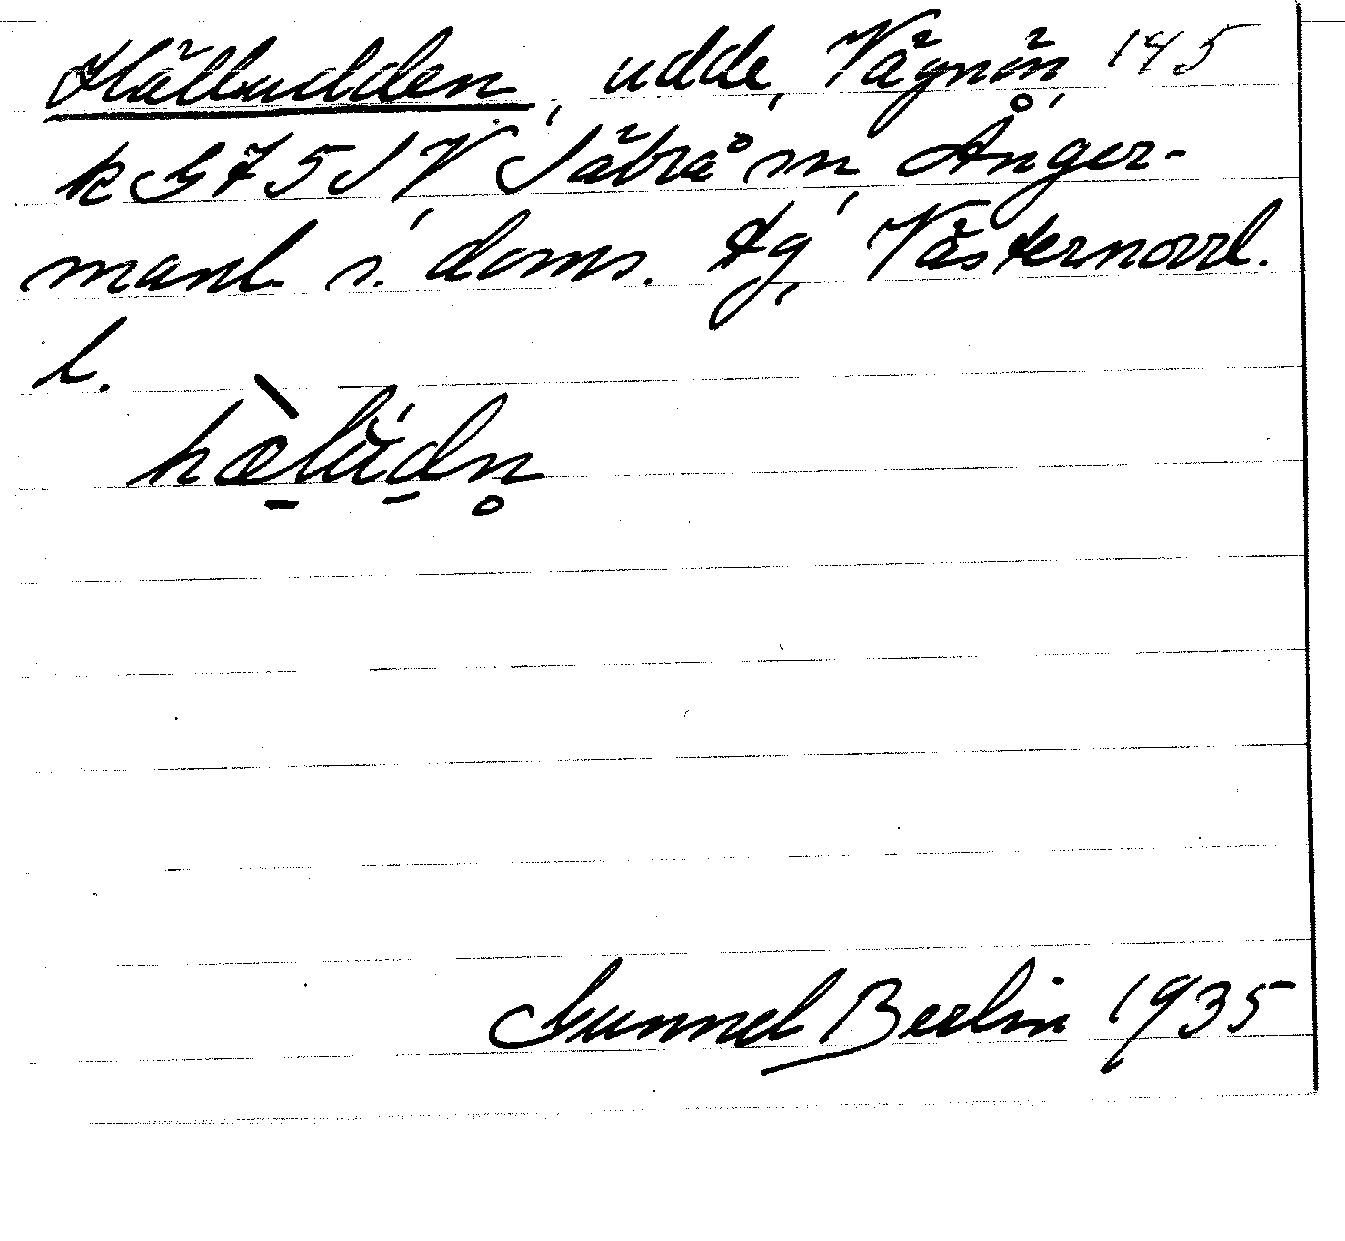 Hälludden, udde, Vägnön, 145
k G 75 SV Säbrå sn, Ånger-
manl. s. doms. tg, Västernorrl.
l.
Gunnel Berlin 1935